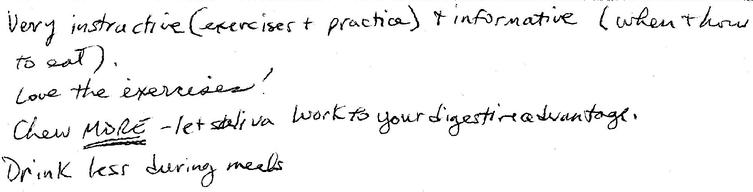 Very instructive (exercises + practice) + informative (when + how
to eat).
Love the exercises!
Chew MORE - let saliva work to your digestive advantage.
Drink less during meals